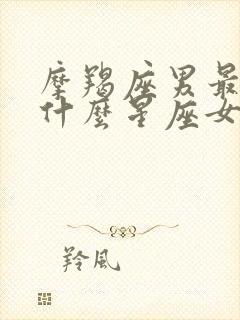 摩羯座男最
什麼星座女
羚風